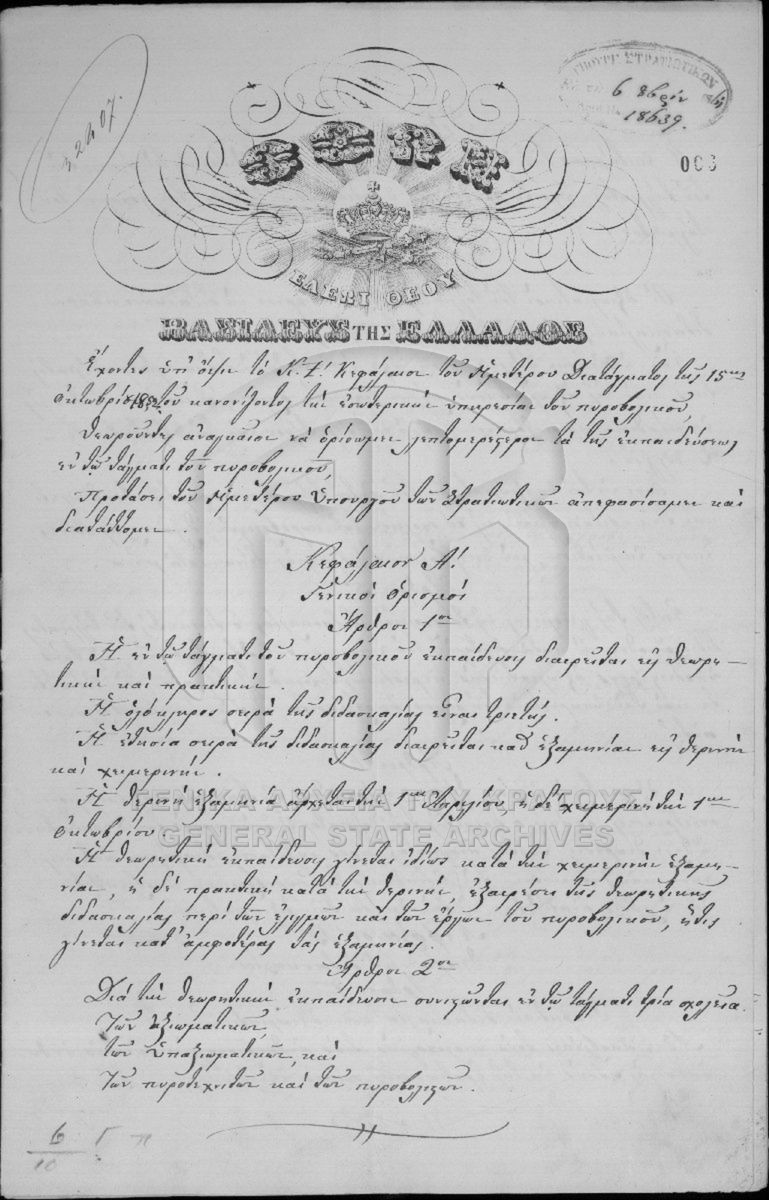 32407.
ΥΠΟΥΡΓ. ΣΤΡΑΤΙΩΤΙΚΩΝ
6 8βρίου
18639.
003
ΟΘΩΝ
ΕΛΕΩι ΘΕΟΥ
ΒΑΣΙΛΕΥΣ ΤΗΣ ΕΛΛΑΔΟΣ
Ἔχοντες ὑπ' ὄψιν τὸ Κ. Ζ'. Κεφάλαιον τοῦ Ἡμετέρου Διατάγματος τῆς 15ης
Ὀκτωβρίου τοῦ κανονίζοντος τὴν ἐσωτερικὴν ὑπηρεσίαν τοῦ πυροβολικοῦ,
Θεωροῦντες ἀναγκαῖον νὰ ὁρίσωμεν λεπτομερέστερον τὰ τῆς ἐκπαιδεύσεως
ἐν τῷ τάγματι τοῦ πυροβολικοῦ,
Προτάσει τοῦ Ἡμετέρου Ὑπουργοῦ τῶν Στρατιωτικῶν ἀπεφασίσαμεν καὶ
διατάττομεν.
Κεφάλαιον Α!
Γενικοὶ ὁρισμοί
Ἄρθρον 1ον
Ἡ ἐν τῷ τάγματι τοῦ πυροβολικοῦ ἐκπαίδευσις διαιρεῖται εἰς θεωρη-
τικὴν καὶ πρακτικήν.
Ἡ ὁλόκληρος σειρὰ τῆς διδασκαλίας εἶναι τριετής.
Ἡ ἐτησία σειρὰ τῆς διδασκαλίας διαιρεῖται καθ' ἑξαμηνίαν εἰς θερινὴν
καὶ χειμερινήν.
Ἡ θερινὴ ἑξαμηνία ἄρχεται τὴν 1ην Ἀπριλίου, ἡ δὲ χειμερινὴ τὴν 1ην
Ὀκτωβρίου.
ΓΕΝΙΚΑ ΑΡΧΕΙΑ ΤΟΥ ΚΡΑΤΟΥΣ
GENERAL STATE ARCHIVES
Ἡ θεωρητικὴ ἐκπαίδευσις γίνεται ἰδίως κατὰ τὴν χειμερινὴν ἑξαμη-
νίαν, ἡ δὲ πρακτικὴ κατὰ τὴν θερινήν, ἐξαιρέσει τῆς θεωρητικῆς
διδασκαλίας περὶ τῶν ἑλιγμῶν καὶ τῶν ἔργων τοῦ πυροβολικοῦ, ἥτις
γίνεται κατ' ἀμφοτέρας τὰς ἑξαμηνίας.
Ἄρθρον 2ον
Διὰ τὴν θεωρητικὴν ἐκπαίδευσιν συνιστῶνται ἐν τῷ τάγματι τρία σχολεῖα.
Τῶν ἀξιωματικῶν,
τῶν Ὑπαξιωματικῶν, καὶ
τῶν πυροτεχνιτῶν καὶ τῶν πυροβολιστῶν.
6
10